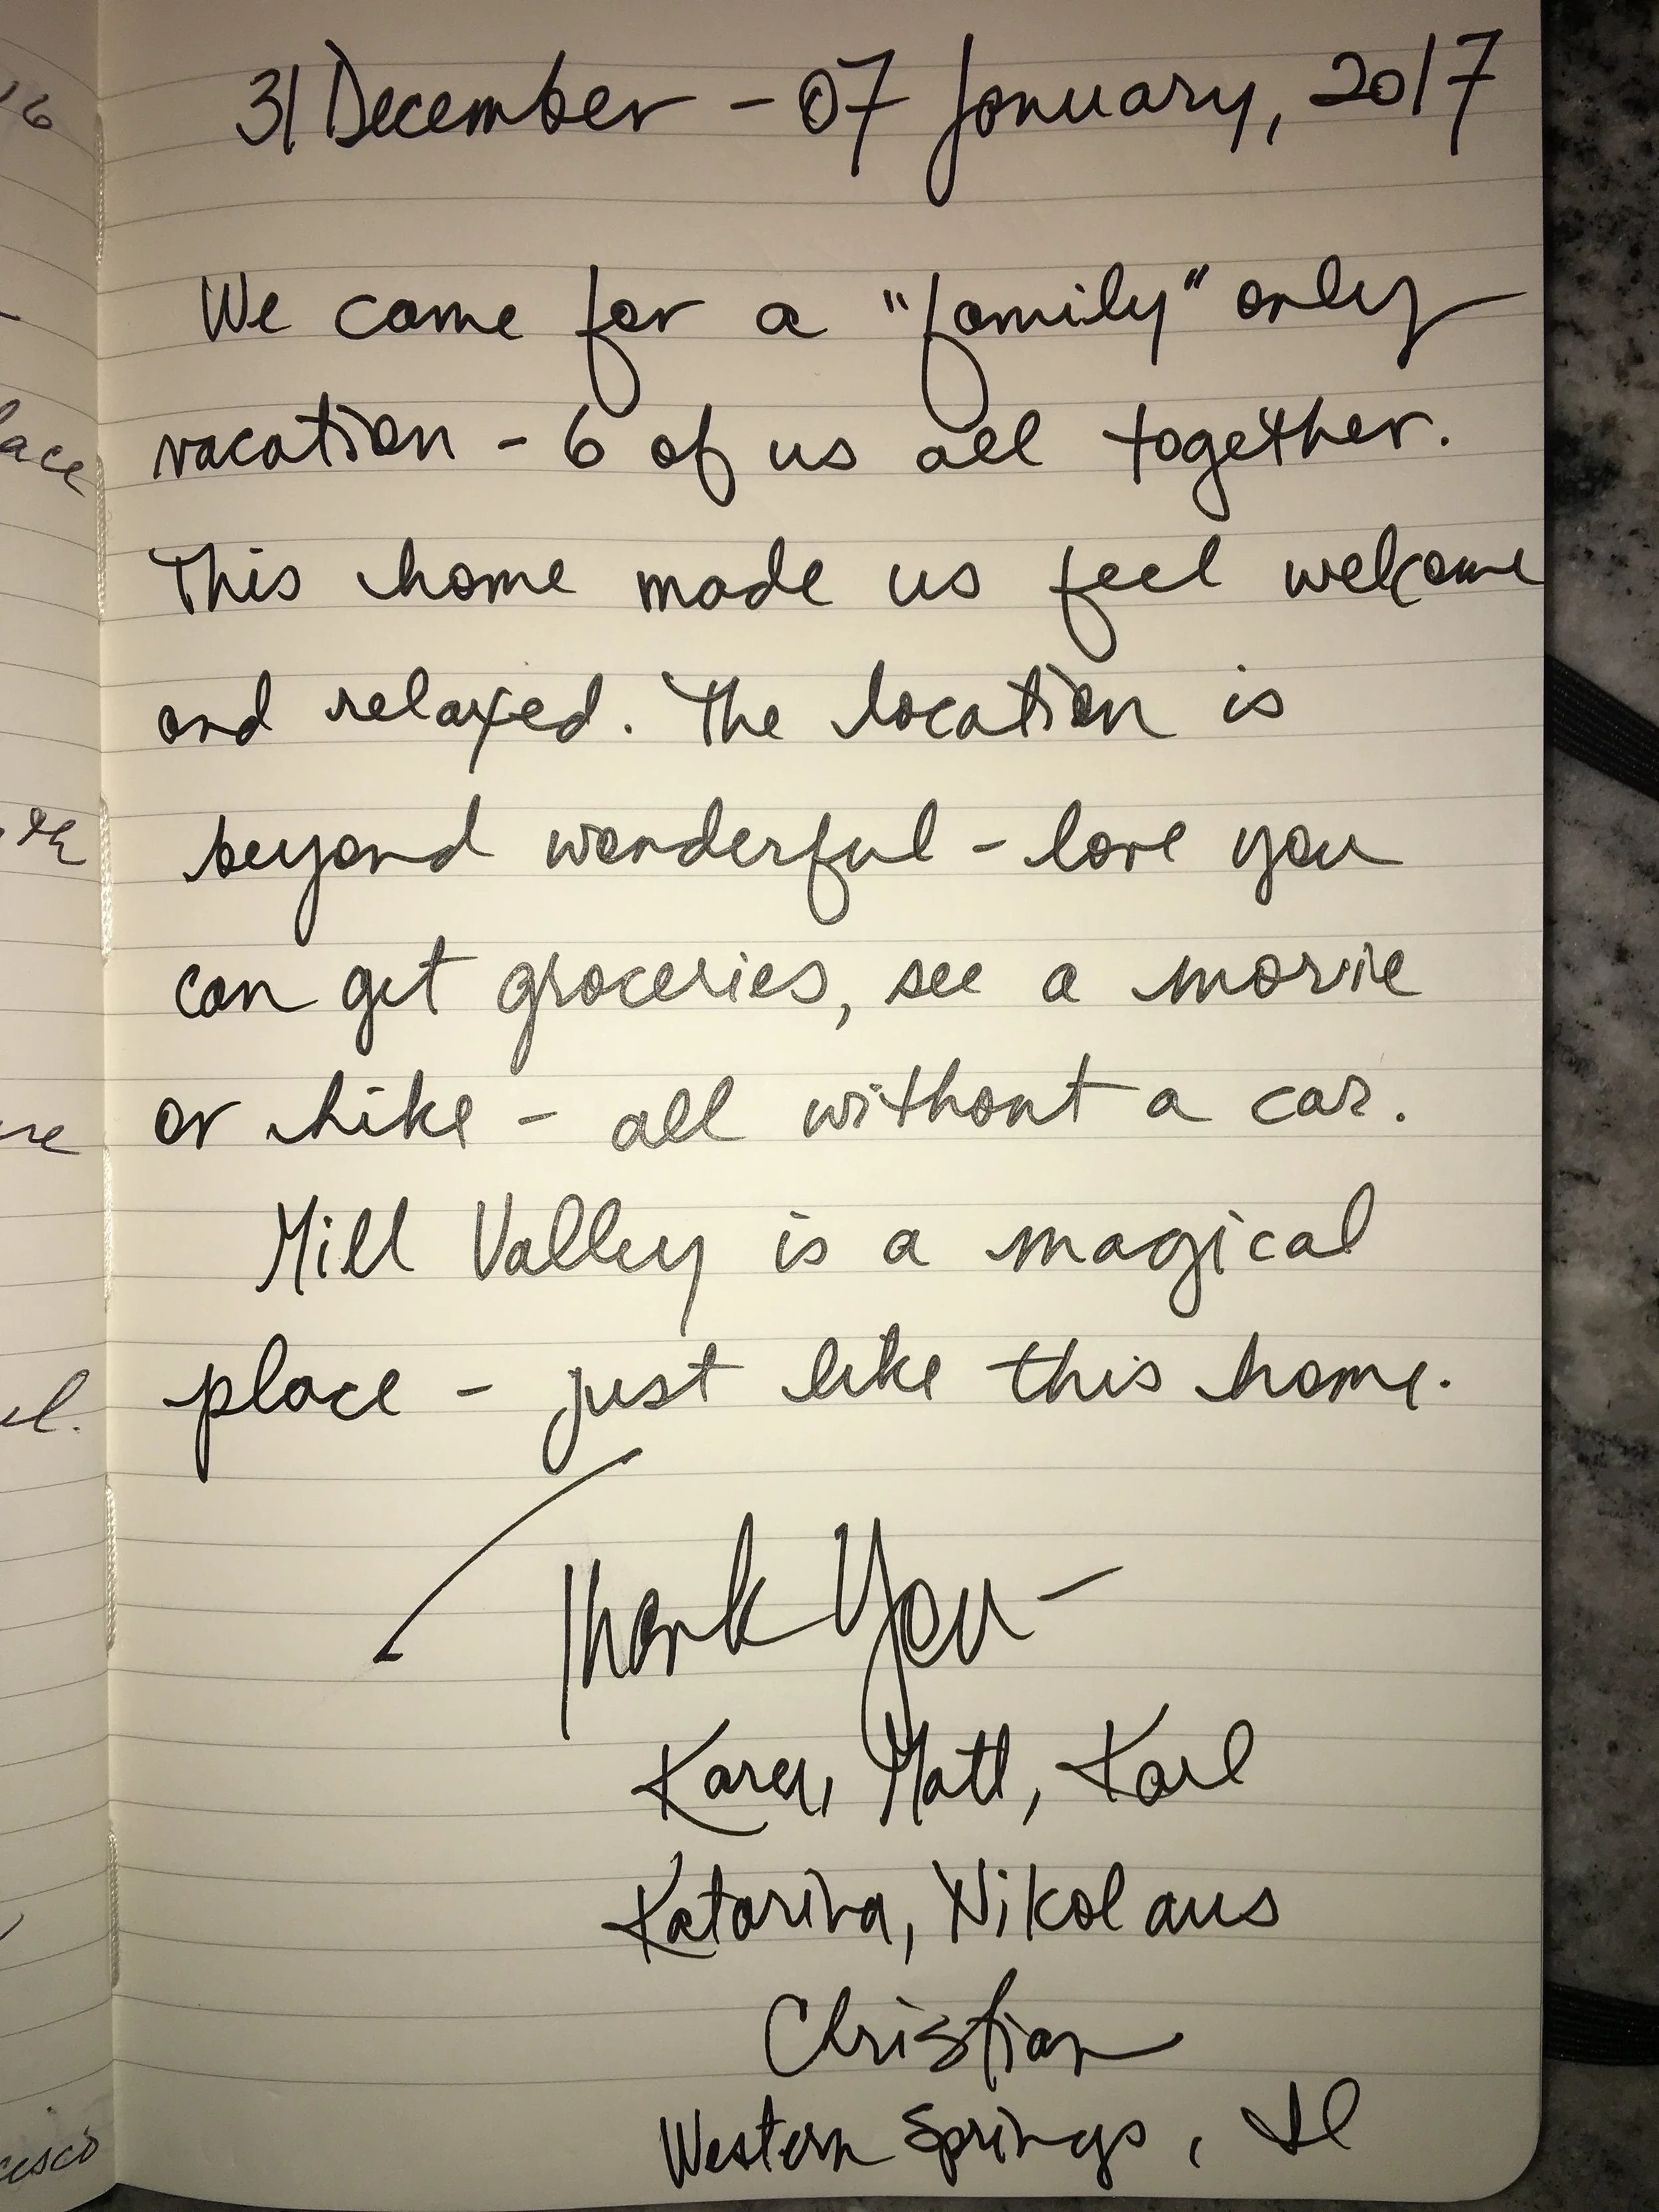 31 December - 07 January, 2017
We came for a "family" only
vacation - 6 of us all together.
This home made us feel welcome
and relaxed. The location is
beyond wonderful - love you
can get groceries, see a movie
or hike - all without a car.
Mill Valley is a magical
place - just like this home.
Thank You -
Karen, Matt, Karl
Katarina, Nikolaus
Christian
Western Springs, Il